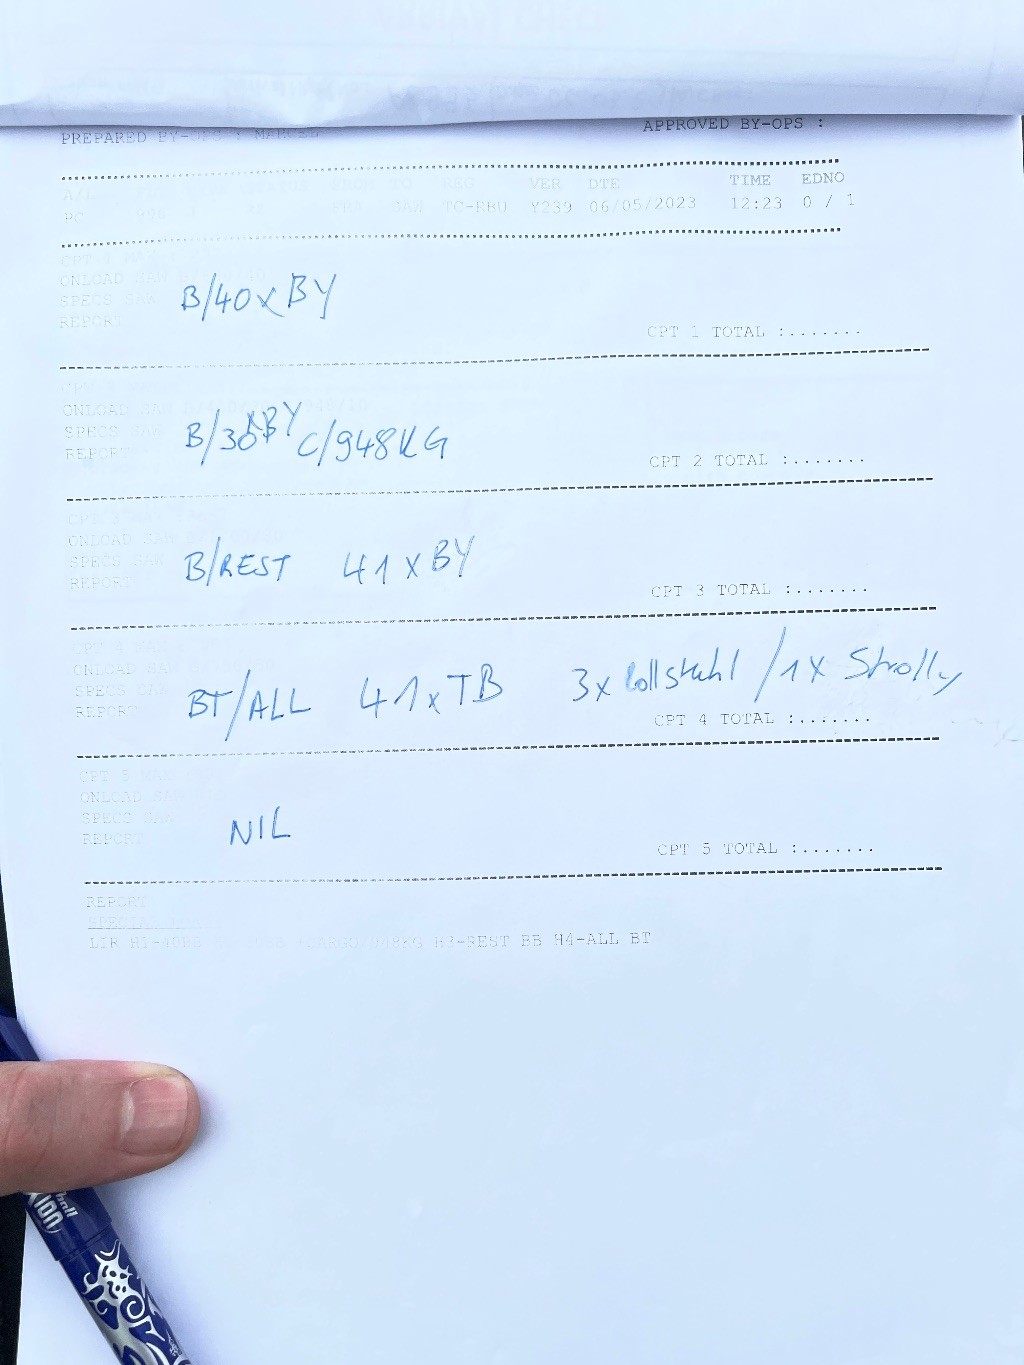 PREPARED BY-OPS : MARCEL
APPROVED BY-OPS :
A/L FROM TO REG VER DTE TIME EDNO
PC SAW TC-RBU Y239 06/05/2023 12:23 0 / 1
CPT 1 MAX
ONLOAD SAW
SPECS SAW
B/40 x BY
REPORT
CPT 1 TOTAL :.......
ONLOAD SAW
SPECS SAW
B/30xBY C/948KG
REPORT
CPT 2 TOTAL :.......
CPT 3 MAX
ONLOAD SAW
SPECS SAW
B/REST 41 x BY
REPORT
CPT 3 TOTAL :.......
CPT 4 MAX
ONLOAD SAW
SPECS SAW
BT/ALL 41 x TB 3x Rollstuhl / 1 x Strolly
REPORT
CPT 4 TOTAL :.......
CPT 5 MAX
ONLOAD SAW
SPECS SAW
NIL
REPORT
CPT 5 TOTAL :.......
REPORT
SPECIAL
LIR H1-40BB +CARGO 948KG H3-REST BB H4-ALL BT